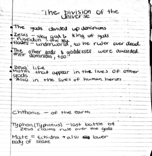 The Division of the
Universe
• The gods divided up dominions
• Zeus - sky god & king of gods
• Poseidon - the sea
• Hades - underworld, so the ruler over dead
• The other gods & goddesses were awarded
their domains, too
• Zeus' life
• that appear in the lives of other
gods
• Also in the lives of human heroes
Chthonic - of the earth
Typhon (Typhoeus) - last battle of
Zeus' claims rule over the gods
Half & lower
body of snake